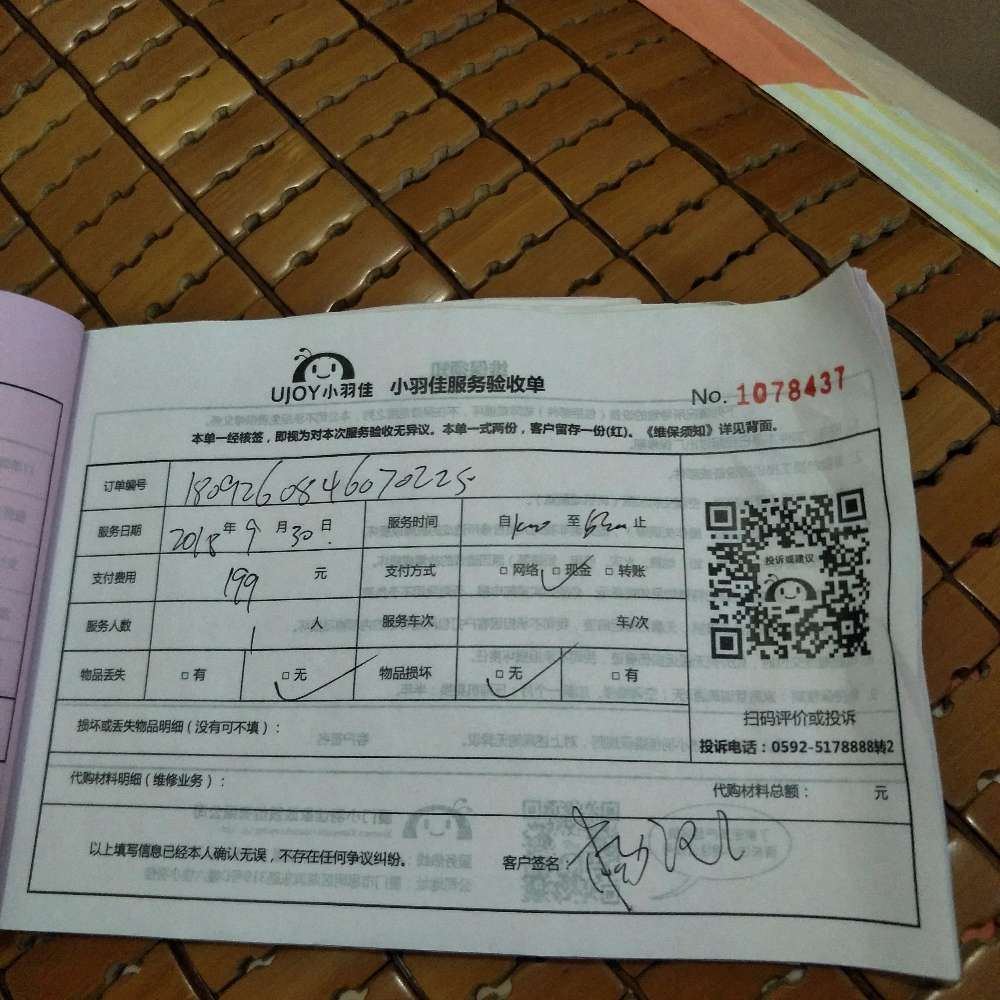 UJOY小羽佳 小羽佳服务验收单
No. 1078437
本单一经核签，即视为对本次服务验收无异议。本单一式两份，客户留存一份(红)。《维保须知》详见背面。
订单编号 1809260846070225
服务日期 2018年9月30日 服务时间 自 至 止
支付费用 199 元 支付方式 □网络 □现金 □转账
服务人数 1 人 服务车次 车/次
物品丢失 □有 □无 物品损坏 □无 □有
投诉或建议
扫码评价或投诉
投诉电话：0592-5178888转2
损坏或丢失物品明细（没有可不填）：
代购材料明细（维修业务）：
代购材料总额： 元
以上填写信息已经本人确认无误，不存在任何争议纠纷。 客户签名：